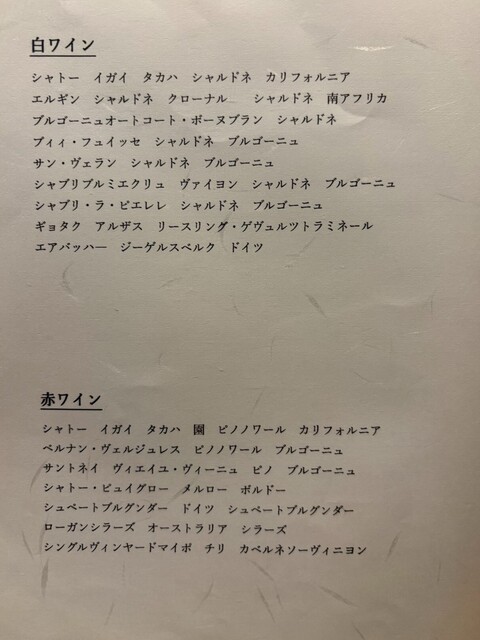 白ワイン
シャトー　イガイ　タカハ　シャルドネ　カリフォルニア
エルギン　シャルドネ　クローナル　　シャルドネ　南アフリカ
ブルゴーニュオートコート・ボーヌブラン　シャルドネ
プィィ・フュイッセ　シャルドネ　ブルゴーニュ
サン・ヴェラン　シャルドネ　ブルゴーニュ
シャブリプルミエクリュ　ヴァイヨン　シャルドネ　ブルゴーニュ
シャブリ・ラ・ピエレレ　シャルドネ　ブルゴーニュ
ギョタク　アルザス　リースリング・ゲヴュルツトラミネール
エアバッハー　ジーゲルスベルク　ドイツ
赤ワイン
シャトー　イガイ　タカハ　園　ピノノワール　カリフォルニア
ペルナン・ヴェルジュレス　ピノノワール　ブルゴーニュ
サントネイ　ヴィエイユ・ヴィーニュ　ピノ　ブルゴーニュ
シャトー・ピュイグロー　メルロー　ボルドー
シュペートブルグンダー　ドイツ　シュペートブルグンダー
ローガンシラーズ　オーストラリア　シラーズ
シングルヴィンヤードマイポ　チリ　カベルネソーヴィニヨン